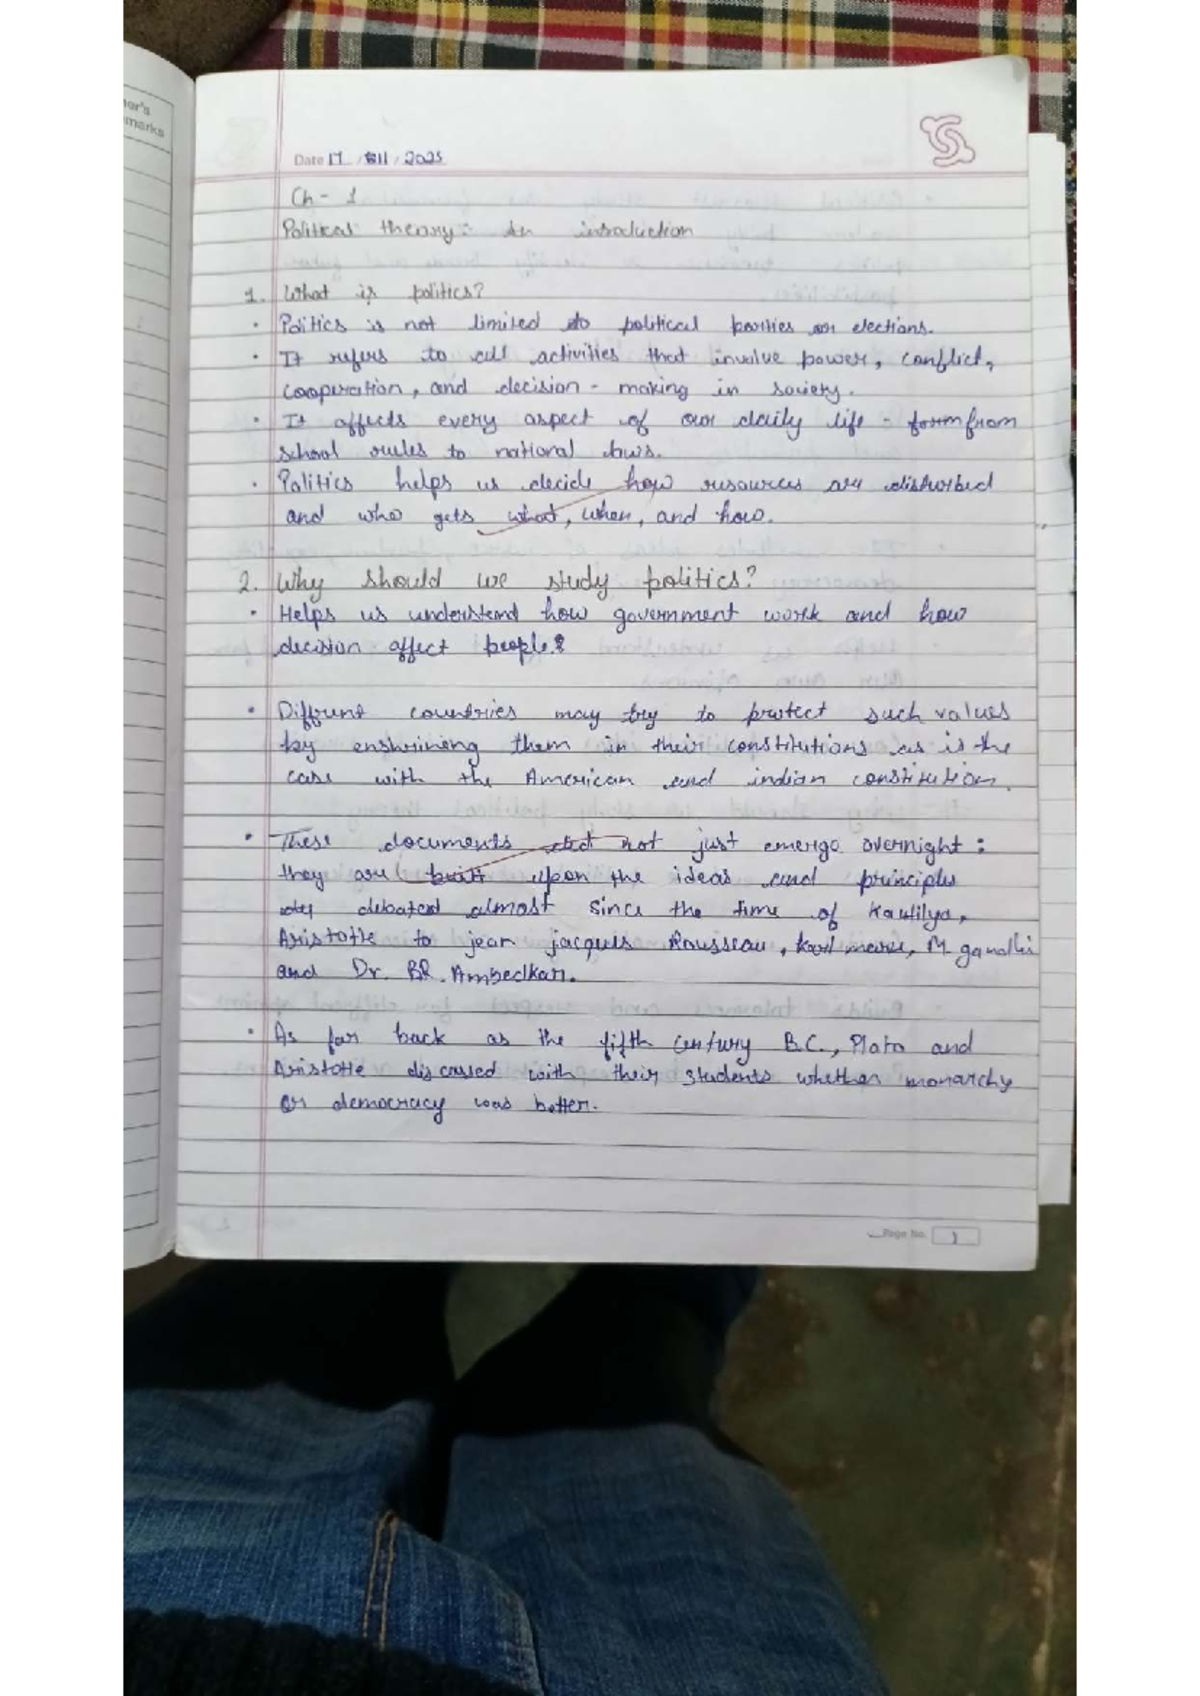 er's
marks
Date 17 / 11 / 2025
Ch - 1
Political theory: An introduction
1. What is politics?
• Politics is not limited to political parties or elections.
• It refers to all activities that involve power, conflict,
cooperation, and decision - making in society.
• It affects every aspect of our daily life - form from
school rules to national laws.
• Politics helps us decide how resources are disturbed
and who gets what, when, and how.
2. Why should we study politics?
• Helps us understand how government work and how
decision affect people
• Diffrent countries may try to protect such values
by enshrining them in their constitutions as is the
case with the American and indian constitution.
• These documents did not just emerge overnight:
they are built upon the ideas and principles
debated almost since the time of Kautilya,
Aristotle to jean jacques Rousseau, Karl marx, M. gandhi
and Dr. BR. Ambedkar.
• As far back as the fifth century B.C., Plato and
Aristotle discussed with their students whether monarchy
or democracy was better.
Page No. 1